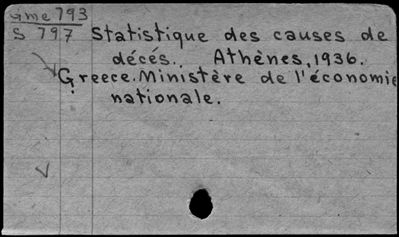 Gme 793
S 797 Statistique des causes de
décés. Athènes, 1936.
Greece. Ministère de l'économie
nationale.